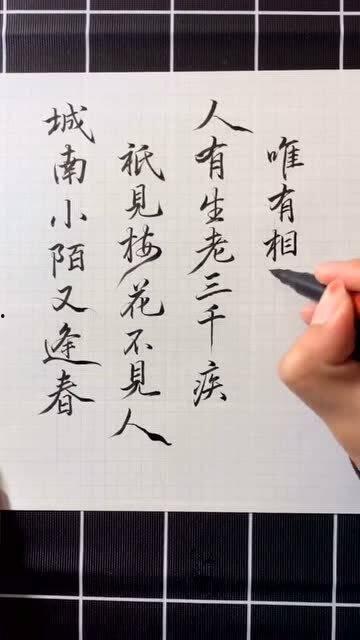 城南小陌又逢春
祇見梅花不見人
人有生老三千疾
唯有相